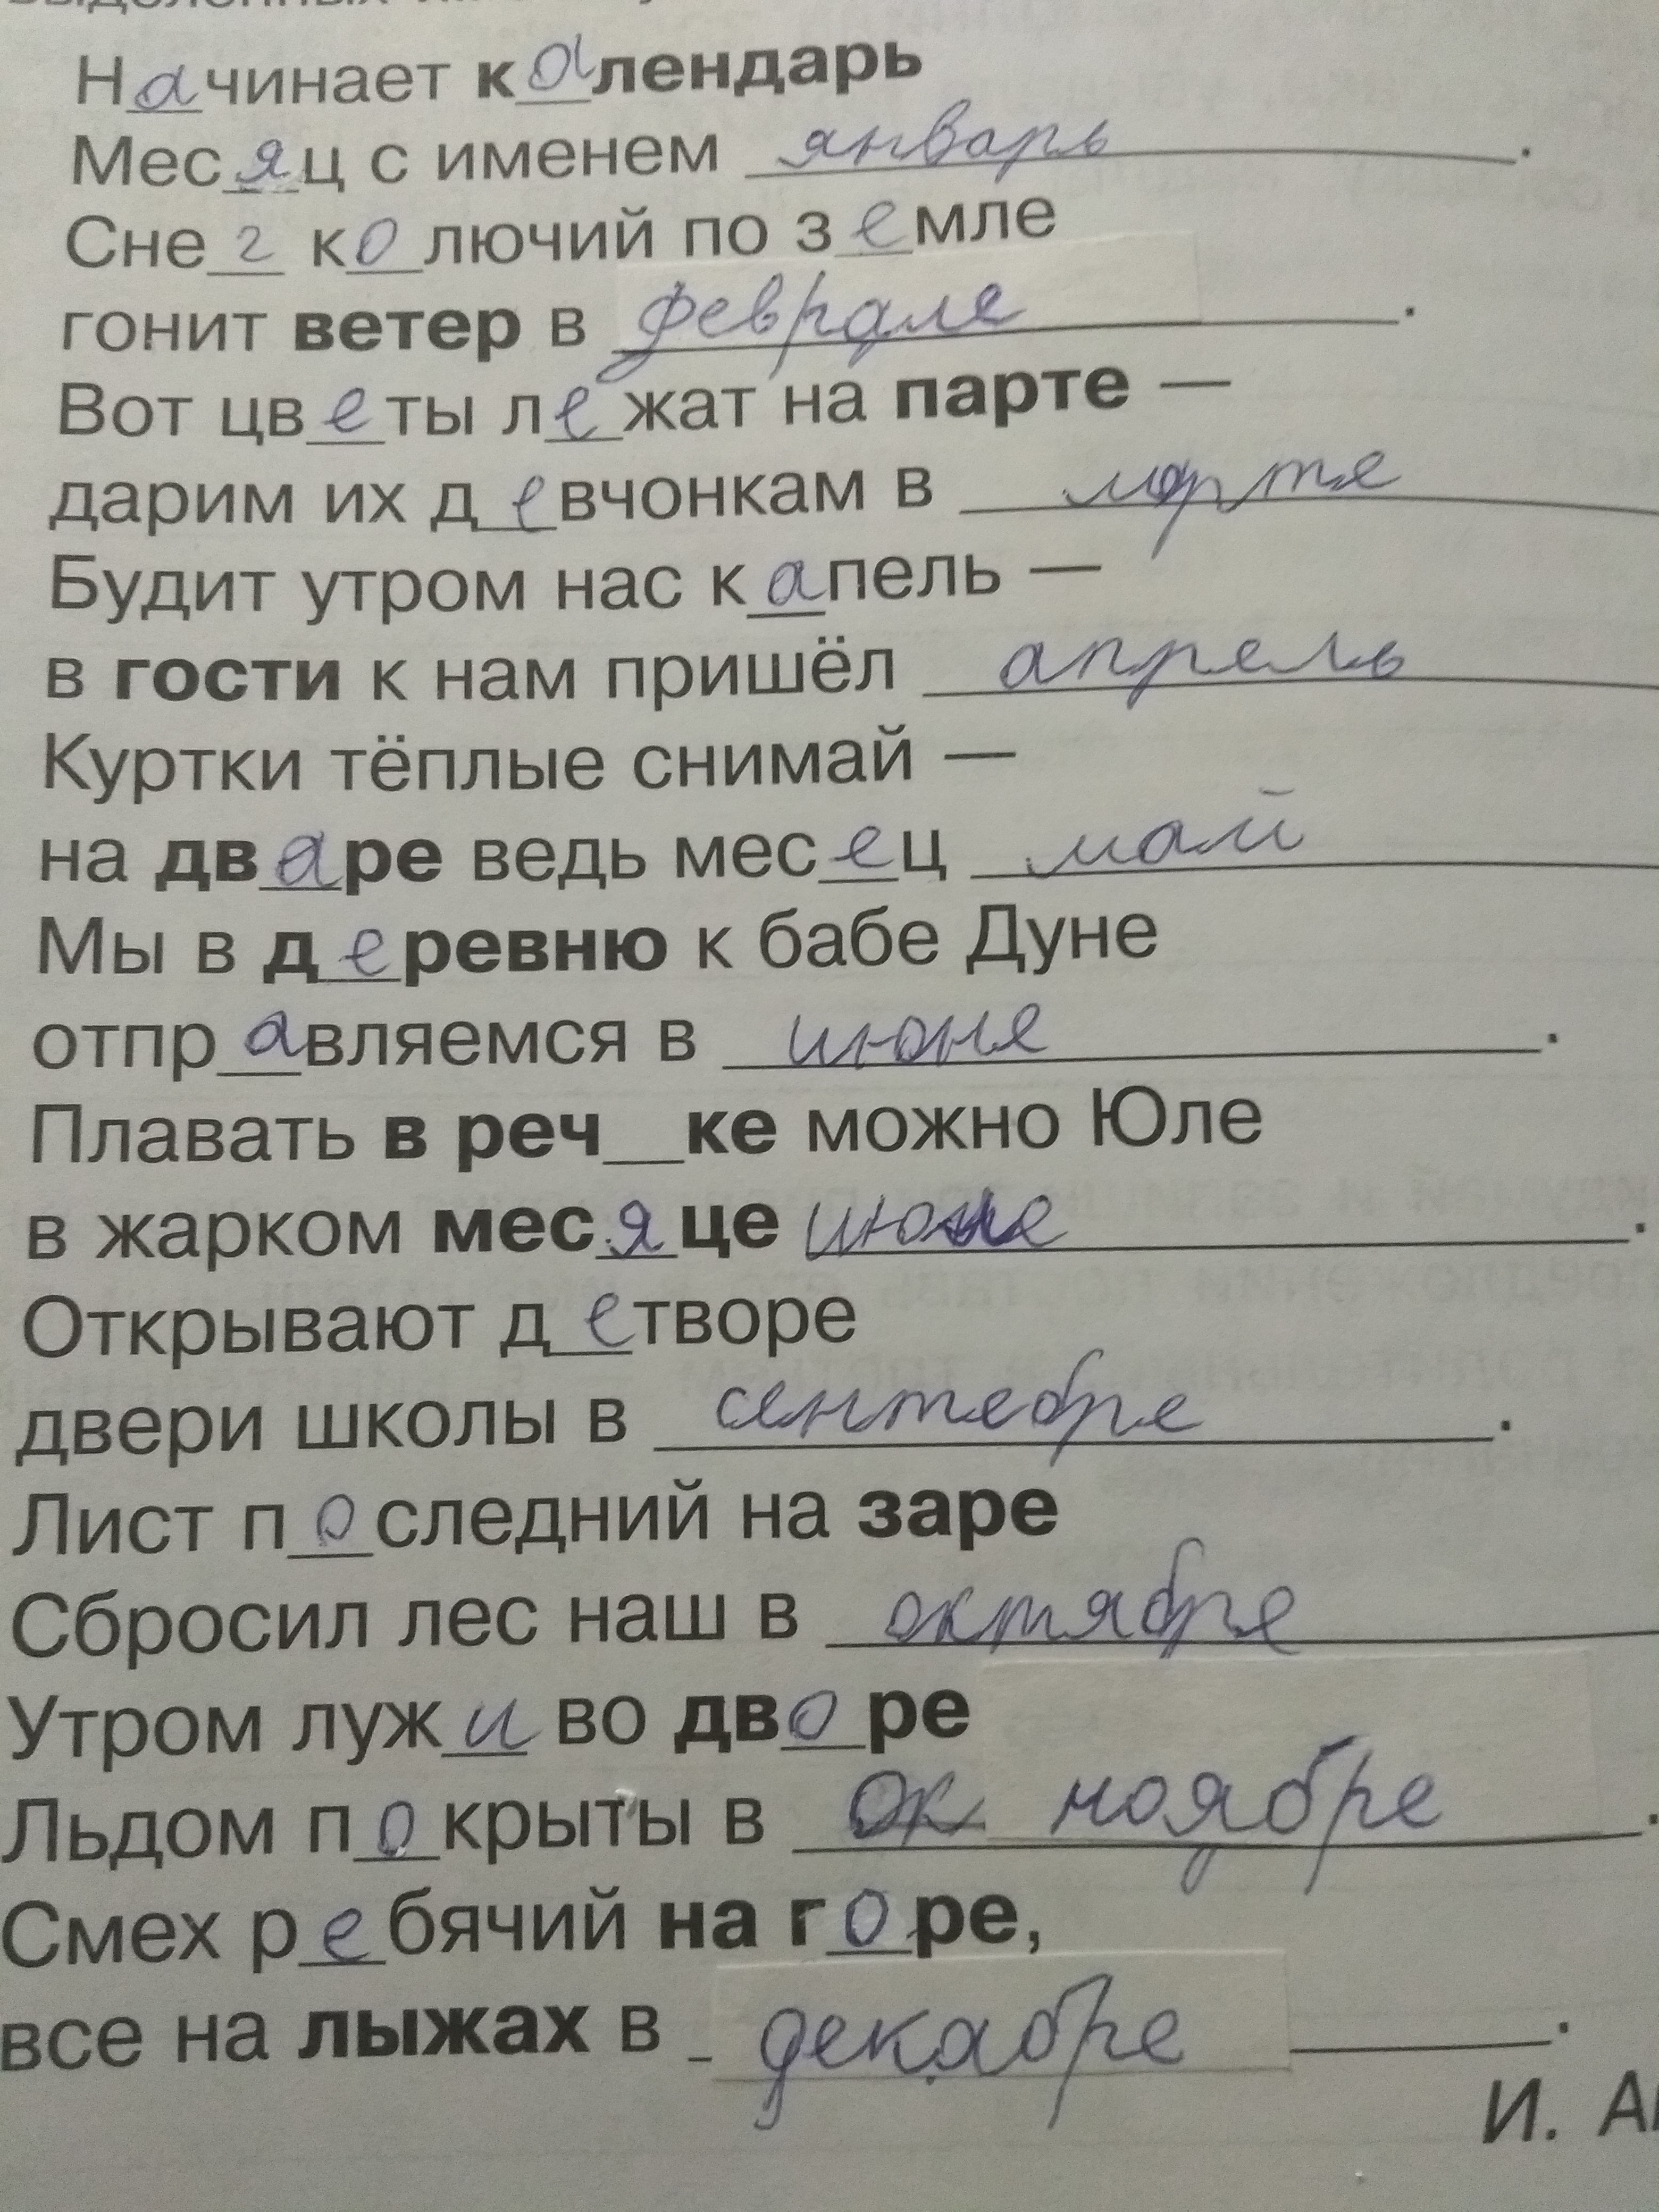 Начинает календарь
Месяц с именем январь.
Снег колючий по земле
гонит ветер в феврале.
Вот цветы лежат на парте —
дарим их девчонкам в марте
Будит утром нас капель —
в гости к нам пришёл апрель
Куртки тёплые снимай —
на дваре ведь месец май
Мы в деревню к бабе Дуне
отправляемся в июне.
Плавать в реч__ке можно Юле
в жарком месяце.
Открывают детворе
двери школы в сентебре.
Лист последний на заре
Сбросил лес наш в октябре
Утром лужи во дворе
Льдом покрыты в ок ноябре.
Смех ребячий на горе,
все на лыжах в декабре.
И.